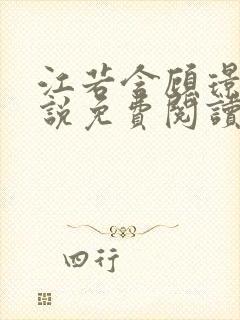 江若含顧璟
說免費閱讀
四行